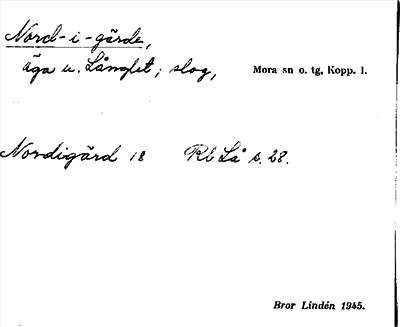 Nord-i-gärde,
äga u. Långlet; slog, Mora sn o. tg, Kopp. l.
Nordigärd 18 RÄ Lå s. 28.
Bror Lindén 1945.